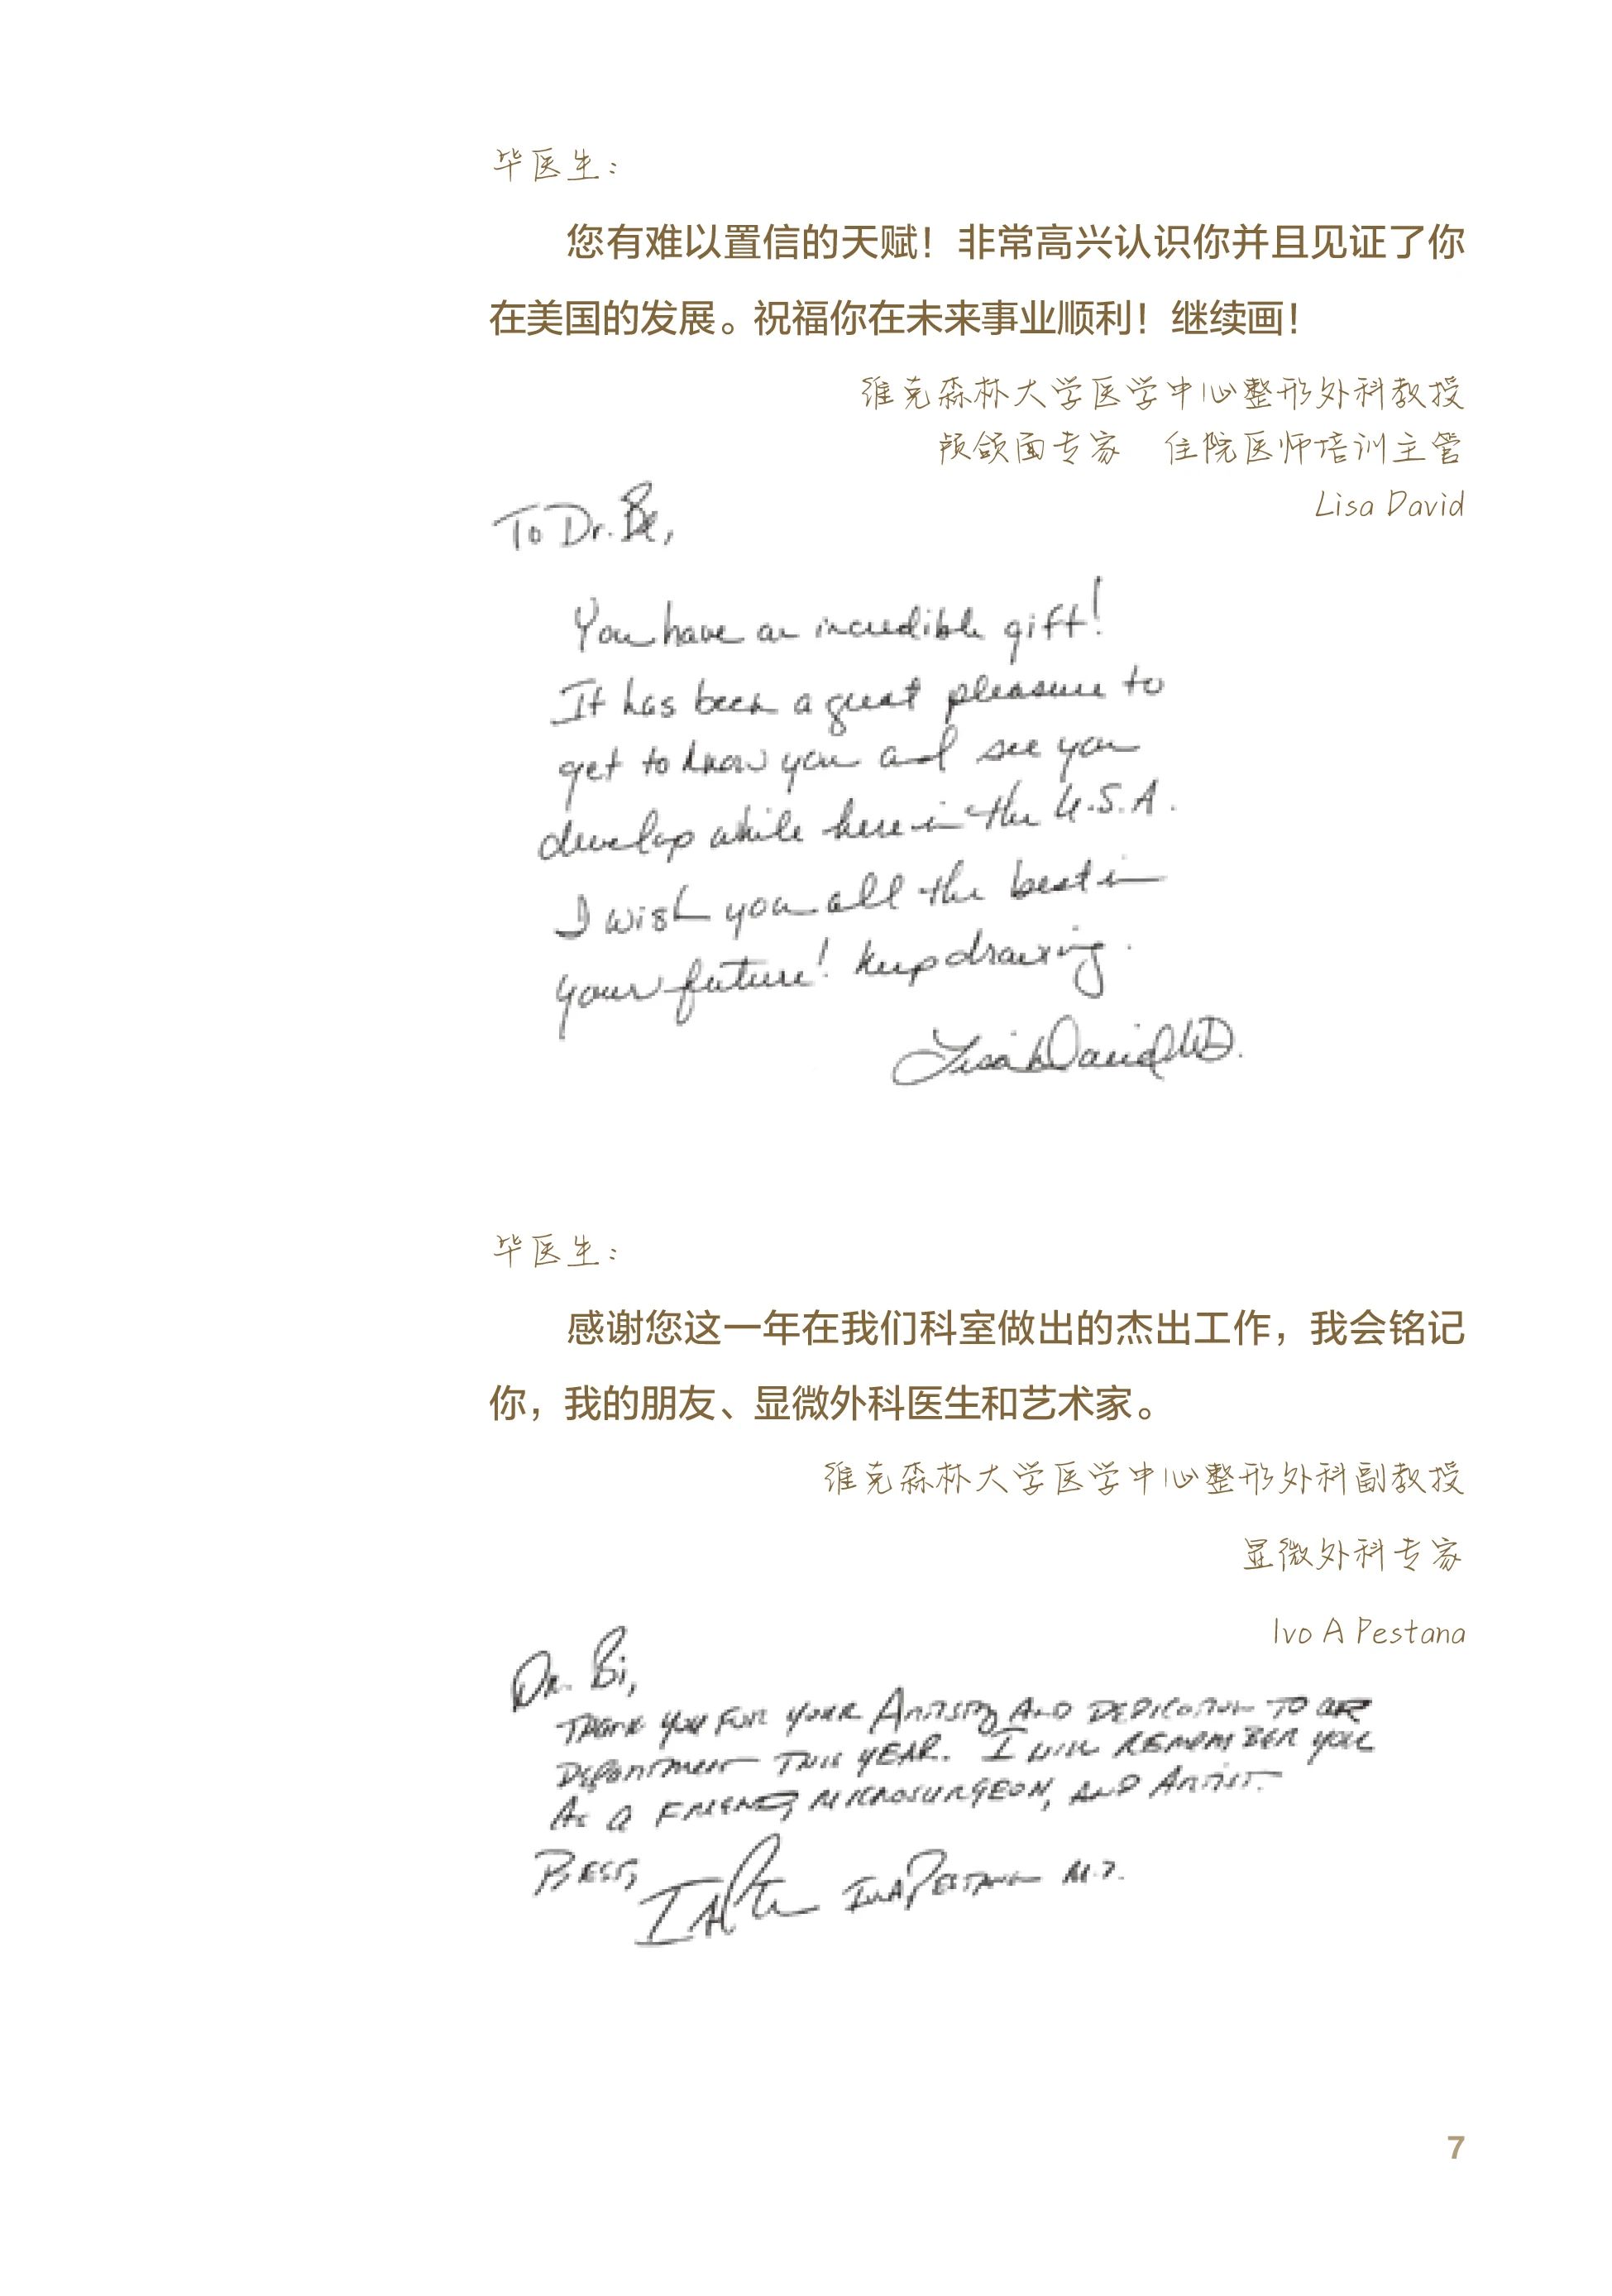 毕医生：
您有难以置信的天赋！非常高兴认识你并且见证了你
在美国的发展。祝福你在未来事业顺利！继续画！
维克森林大学医学中心整形外科教授
颅颌面专家　住院医师培训主管
Lisa David
To Dr. Bi,
You have an incredible gift!
It has been a great pleasure to
get to know you and see you
develop while here in the U.S.A.
I wish you all the best in
your future! Keep drawing.
Lisa David MD.
毕医生：
感谢您这一年在我们科室做出的杰出工作，我会铭记
你，我的朋友、显微外科医生和艺术家。
维克森林大学医学中心整形外科副教授
显微外科专家
Ivo A Pestana
Dr. Bi,
THANK YOU FOR YOUR ARTISTRY AND DEDICATION TO OUR
DEPARTMENT THIS YEAR. I WILL REMEMBER YOU
AS A FRIEND, MICROSURGEON, AND ARTIST.
BEST,
IVO A PESTANA M.D.
7